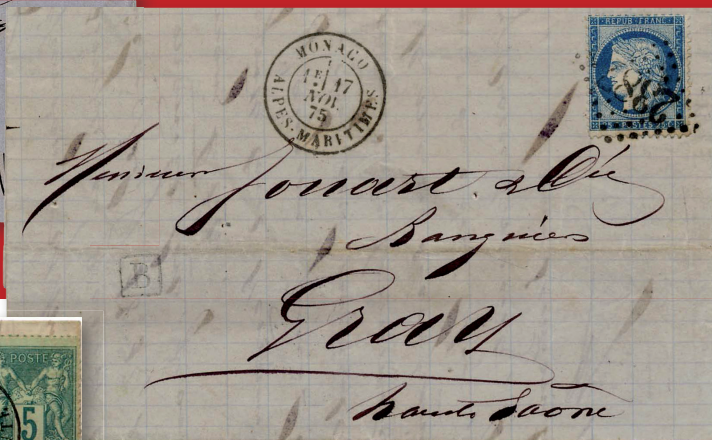 MONACO
1E 17
NOV.
75
ALPES-MARITIMES
REPUB·FRANC
2387
Monsieur Jouart & Cie
Banquiers
B
Gray
haute Saône
POSTE
5